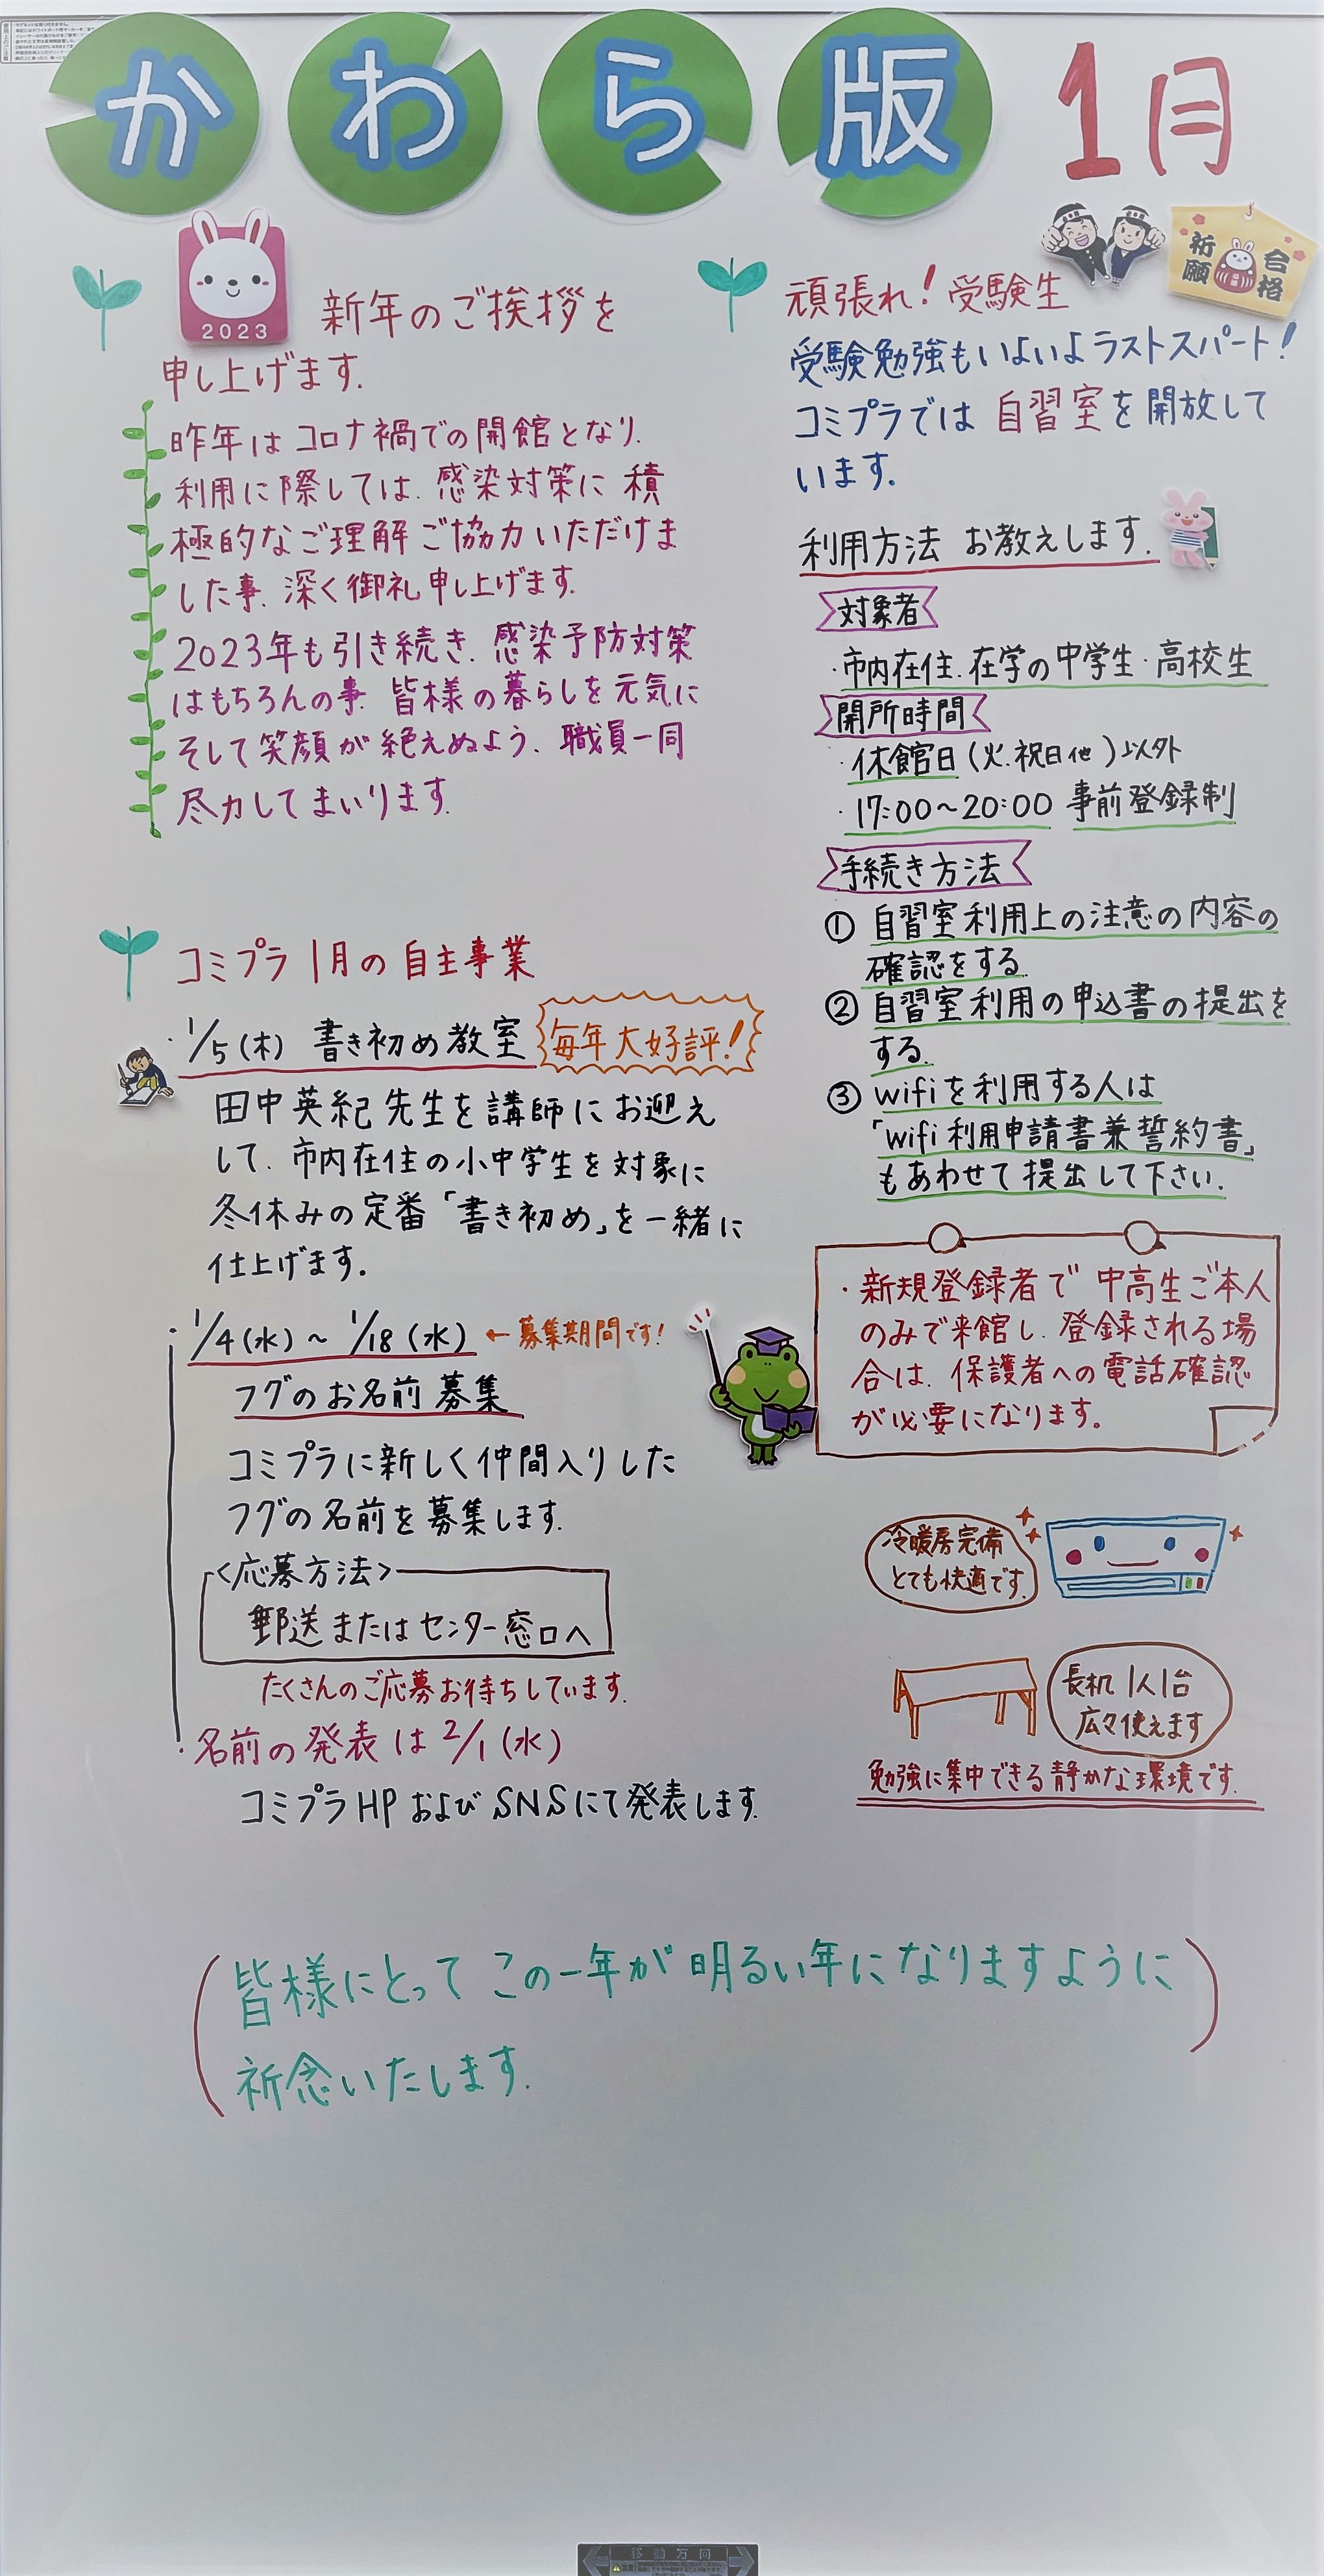 かわら版 1月
2023
新年のご挨拶を
申し上げます.
昨年はコロナ禍での開館となり.
利用に際しては.感染対策に積
極的なご理解ご協力いただけま
した事.深く御礼申し上げます.
2023年も引き続き.感染予防対策
はもちろんの事 皆様の暮らしを元気に
そして笑顔が絶えぬよう、職員一同
尽力してまいります.
コミプラ1月の自主事業
・1/5(木) 書き初め教室
毎年大好評!
田中英紀先生を講師にお迎え
して.市内在住の小中学生を対象に
冬休みの定番「書き初め」を一緒に
仕上げます.
・1/4(水)~1/18(水)
←募集期間です!
フグのお名前募集
コミプラに新しく仲間入りした
フグの名前を募集します.
<応募方法>
郵送またはセンター窓口へ
たくさんのご応募お待ちしています.
・名前の発表は2/1(水)
コミプラHPおよびSNSにて発表します.
合格
祈願
頑張れ!受験生
受験勉強もいよいよラストスパート!
コミプラでは自習室を開放して
います.
利用方法 お教えします.
対象者
・市内在住.在学の中学生・高校生
開所時間
・休館日(火.祝日他)以外
・17:00~20:00 事前登録制
手続き方法
① 自習室利用上の注意の内容の
確認をする.
② 自習室利用の申込書の提出を
する.
③ wifiを利用する人は
「wifi利用申請書兼誓約書」
もあわせて提出して下さい.
・新規登録者で中高生ご本人
のみで来館し.登録される場
合は.保護者への電話確認
が必要になります。
冷暖房完備
とても快適です.
長机1人1台
広々使えます
勉強に集中できる静かな環境です.
皆様にとってこの一年が明るい年になりますように
祈念いたします.
移動方向